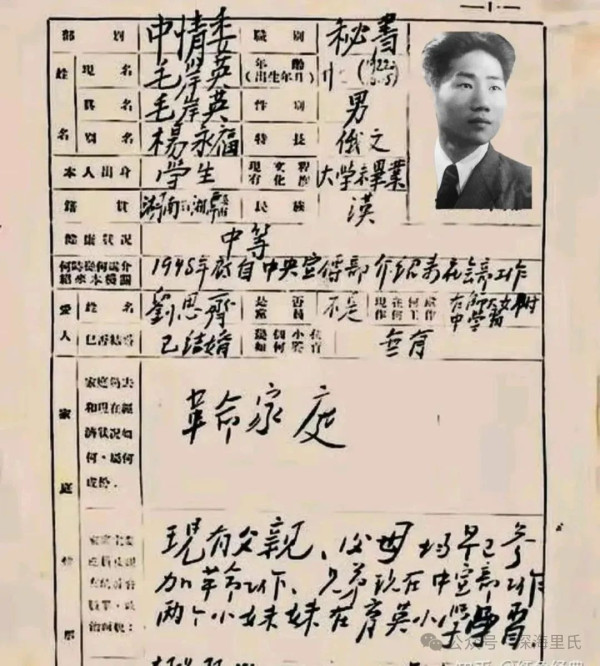 —1—
部別 中情委 職別 秘書
姓名 現名 毛岸英 年齡(出生年月) (1922.
真名 毛岸英 性別 男
別名 楊永福 特長 俄文
本人出身 學生 現有文化程度 大学未畢業
籍貫 湖南 民族 漢
健康狀況 中等
何時從何處介紹來本機關 1948年底自中央宣傳部介紹來社会部工作
愛人 姓名 劉思齊 是否黨員 不是 現在何處作何工作 附中學習
已否結婚 已結婚 無有
家庭 家庭過去和現在經濟狀況如何,屬何成份. 革命家庭
現有父親、父母均早已参
加革命工作、 現在中宣部工作
两个小妹妹在育英小学學習
公众号 深海里氏